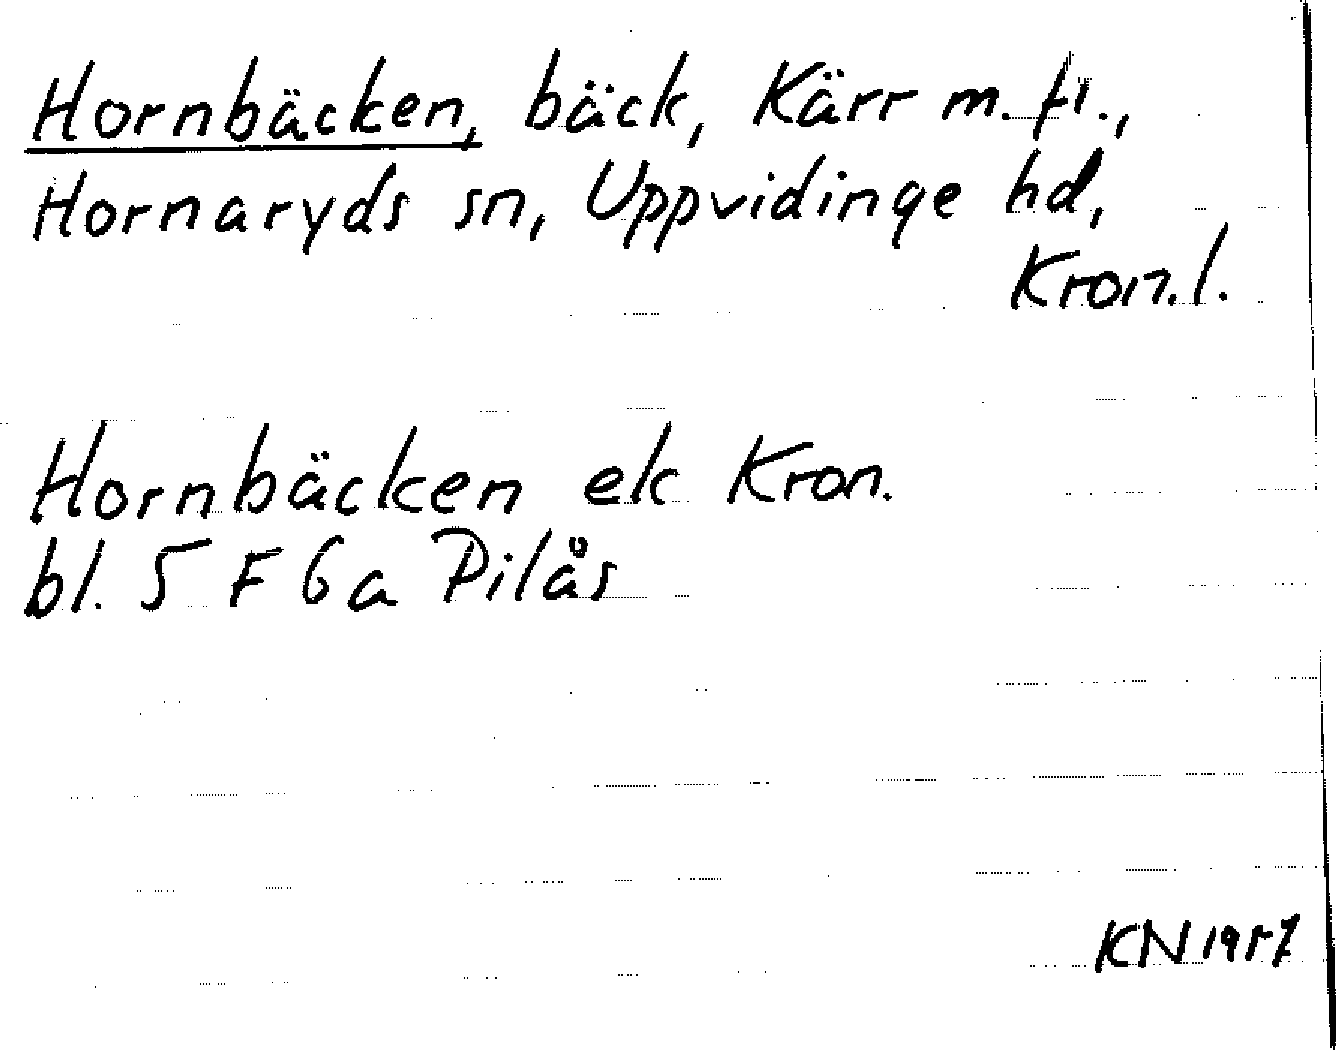 Hornbäcken, bäck, Kärr m. fl.,
Hornaryds sn, Uppvidinge hd,
Kron. l.
Hornbäcken ek Kron.
bl. 5 F 6 a Pilås
KN 1957